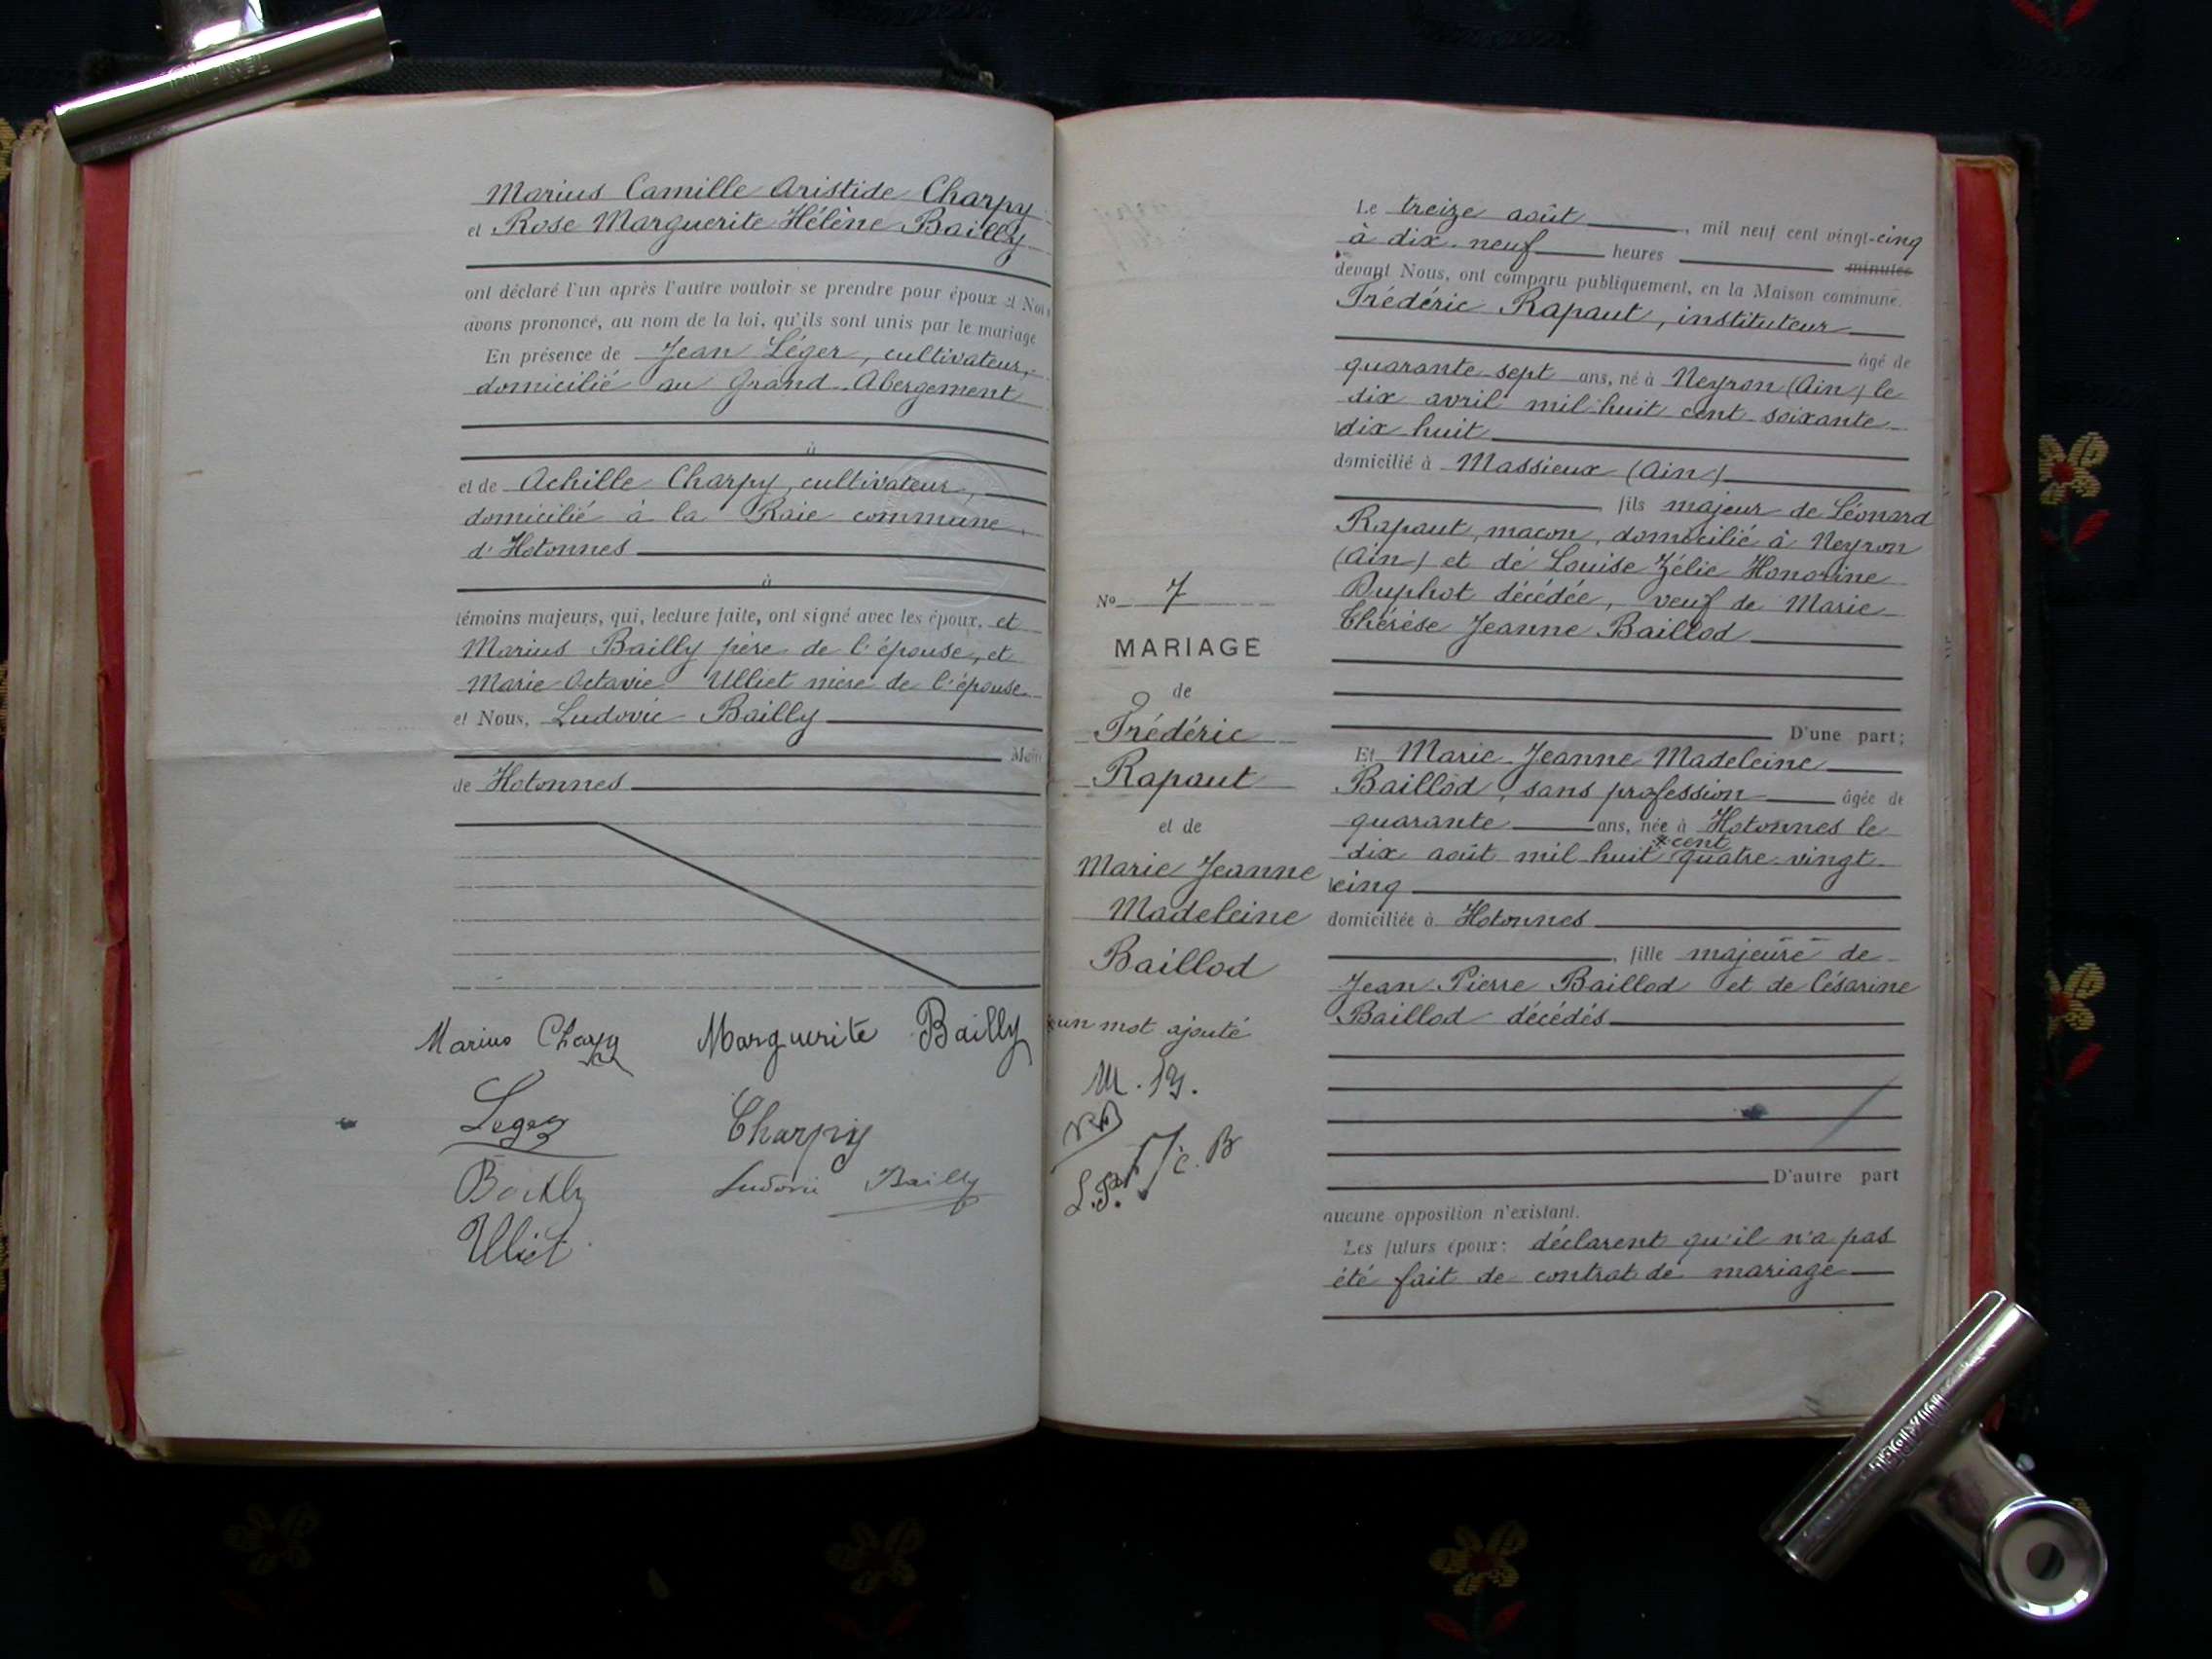 Marius Camille Aristide Charpy
et Rose Marguerite Hélène Bailly
ont déclaré l'un après l'autre vouloir se prendre pour époux et Nous
avons prononcé, au nom de la loi, qu'ils sont unis par le mariage
En présence de Jean Léger, cultivateur,
domicilié au Grand-Abergement
à
et de Achille Charpy, cultivateur,
domicilié à la Raie commune
d'Hotonnes
à
témoins majeurs, qui, lecture faite, ont signé avec les époux, et
Marius Bailly père de l'épouse, et
Marie Octavie Ulliet mère de l'épouse
et Nous, Ludovic Bailly
Maire
de Hotonnes
Marius Charpy Marguerite Bailly
Leger Charpy
Bailly Ludovic Bailly
Ulliet
No 7
MARIAGE
de
Frédéric
Rapaut
et de
Marie Jeanne
Madeleine
Baillod
un mot ajouté
M. B.
RB
C. B
Le treize août, mil neuf cent vingt-cinq
à dix-neuf heures minutes
devant Nous, ont comparu publiquement, en la Maison commune.
Frédéric Rapaut, instituteur
âgé de
quarante-sept ans, né à Neyron (Ain) le
dix avril mil huit cent soixante
dix huit
domicilié à Massieux (Ain)
, fils majeur de Léonard
Rapaut, maçon, domicilié à Neyron
(Ain) et de Louise Zélie Honorine
Duphot décédée, veuf de Marie
Thérèse Jeanne Baillod
D'une part;
Et Marie Jeanne Madeleine
Baillod, sans profession âgée de
quarante ans, née à Hotonnes le
dix août mil huit * cent quatre vingt
cinq
domiciliée à Hotonnes
, fille majeure de
Jean Pierre Baillod et de Césarine
Baillod décédés
D'autre part
aucune opposition n'existant.
Les futurs époux: déclarent qu'il n'a pas
été fait de contrat de mariage